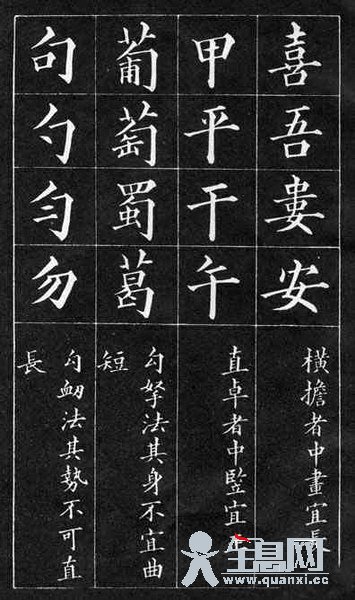 喜吾婁安
橫擔者中畫宜長
甲平干午
直卓者中竪宜
葡萄蜀葛
勾拏法其身不宜曲
短
句勺勻勿
勾衂法其勢不可直
長
全息网
www.quanxi.cc